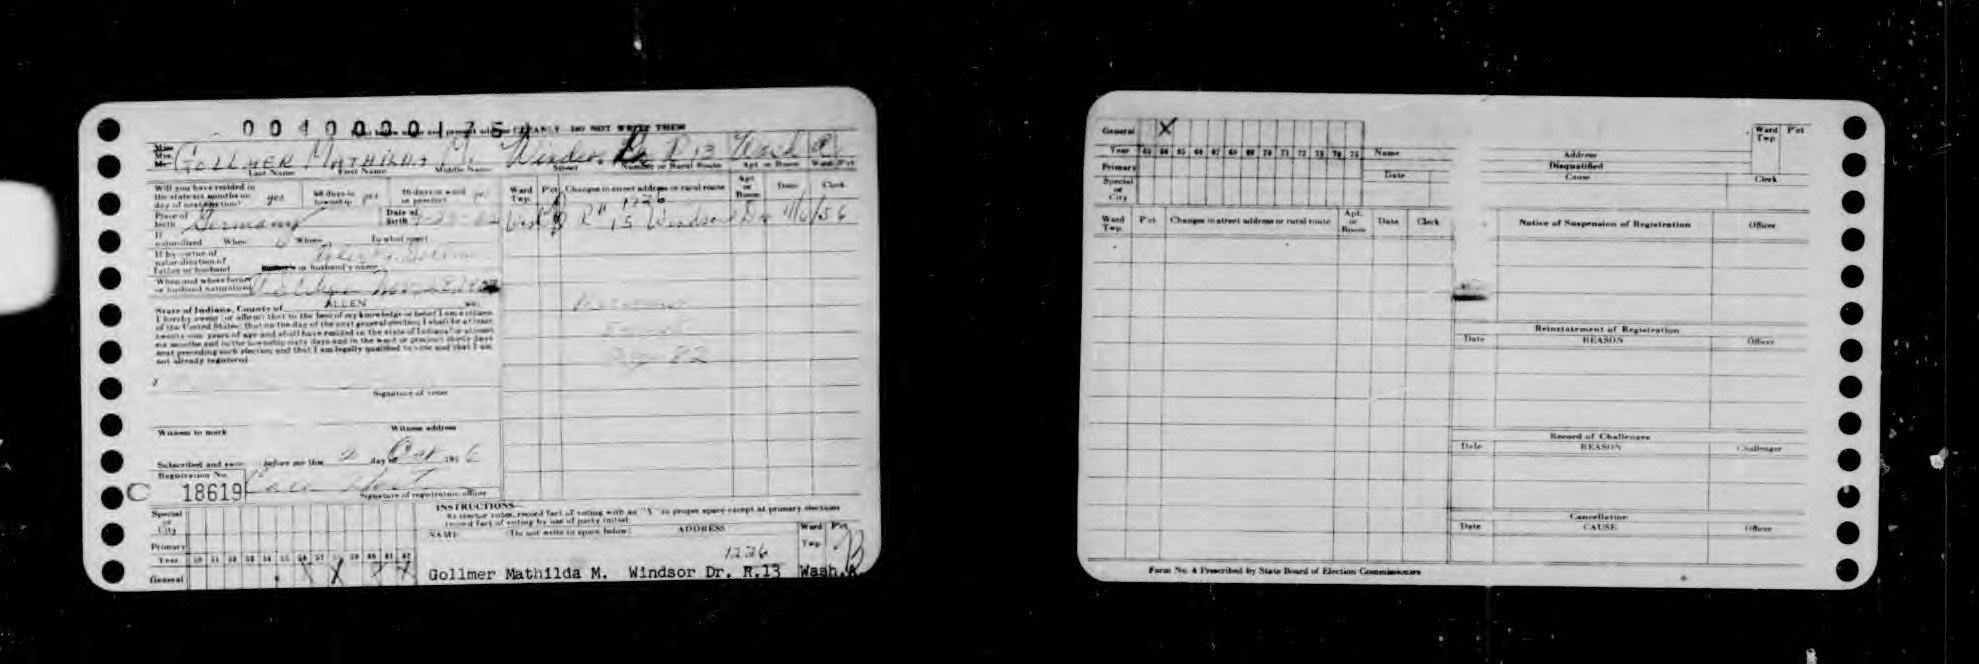 0040000175
Print below name and present address CLEARLY DO NOT WRITE THEM
Miss
Mrs.
Mr.
GOLLMER MATHILDA M. Windsor Dr R 13 Wash A
Last Name First Name Middle Name Street Number or Rural Route Apt. or Room Ward P'ct
Will you have resided in the state six months on day of next election? yes 60 days in township yes 30 days in ward or precinct
Place of birth Germany Date of birth
If naturalized When Where To what court
If by virtue of naturalization of father or husband or husband's name
When and where father or husband naturalized
State of Indiana, County of ALLEN ss:
I hereby swear (or affirm) that to the best of my knowledge or belief I am a citizen
of the United States; that on the day of the next general election I shall be at least
twenty-one years of age and shall have resided in the state of Indiana for at least
six months and in the township sixty days and in the ward or precinct thirty days
next preceding such election; and that I am legally qualified to vote and that I am
not already registered.
X
Signature of voter
Witness to mark Witness address
Subscribed and sworn before me this 2 day of Oct 1956
Registration No.
C 18619
Signature of registration officer
Ward Twp. P'ct Changes in street address or rural route Apt. or Room Date Clerk
1226
Wash B R# 15 Windsor Dr 11/6/56
INSTRUCTIONS
As elector votes, record fact of voting with an "X" in proper space except at primary elections
record fact of voting by use of party initial
Special or City
Primary
Year 50 51 52 53 54 55 56 57 58 59 60 61 62
General X X X X
NAME (Do not write in space below) ADDRESS Ward Twp. P'ct
1226 B
Gollmer Mathilda M. Windsor Dr. R.13 Wash.A
General X
Year 63 64 65 66 67 68 69 70 71 72 73 74 75
Primary
Special or City
Name
Date
Address
Disqualified
Cause
Ward Twp P'ct
Clerk
Ward Twp. P'ct Changes in street address or rural route Apt. or Room Date Clerk
Notice of Suspension of Registration Officer
Reinstatement of Registration
Date REASON Officer
Record of Challenges
Date REASON Challenger
Cancellation
Date CAUSE Officer
Form No. 4 Prescribed by State Board of Election Commissioners